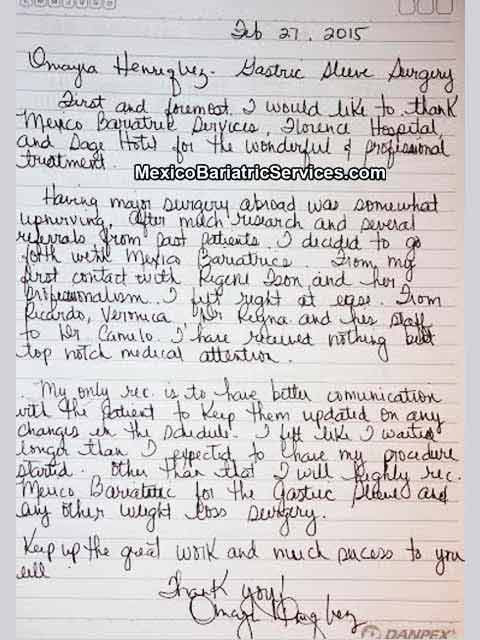 Feb 27, 2015
Omayra Henriqhez - Gastric Sleeve Surgery
First and foremost I would like to thank
Mexico Bariatric Services, Florence Hospital,
and Dage Hotel for the wonderful & professional
treatment.
MexicoBariatricServices.com
Having major surgery abroad was somewhat
upnurving. After much research and several
referrals from past patients. I decided to go
forth with Mexico Bariatrics. From my
first contact with and her
professionalism I felt right at ease. From
Ricardo, Veronica, Dr Reyna and his staff
to Dr. Camilo. I have received nothing but
top notch medical attention.
My only rec. is to have better comunication
with the patient to keep them updated on any
changes in the schedule. I felt like I waited
longer than I expected to have my procedure
started. Other than that I will highly rec.
Mexico Bariatric for the Gastric Sleeve and
any other weight loss surgery.
Keep up the great work and much success to you
all
Thank you!
DANPEX